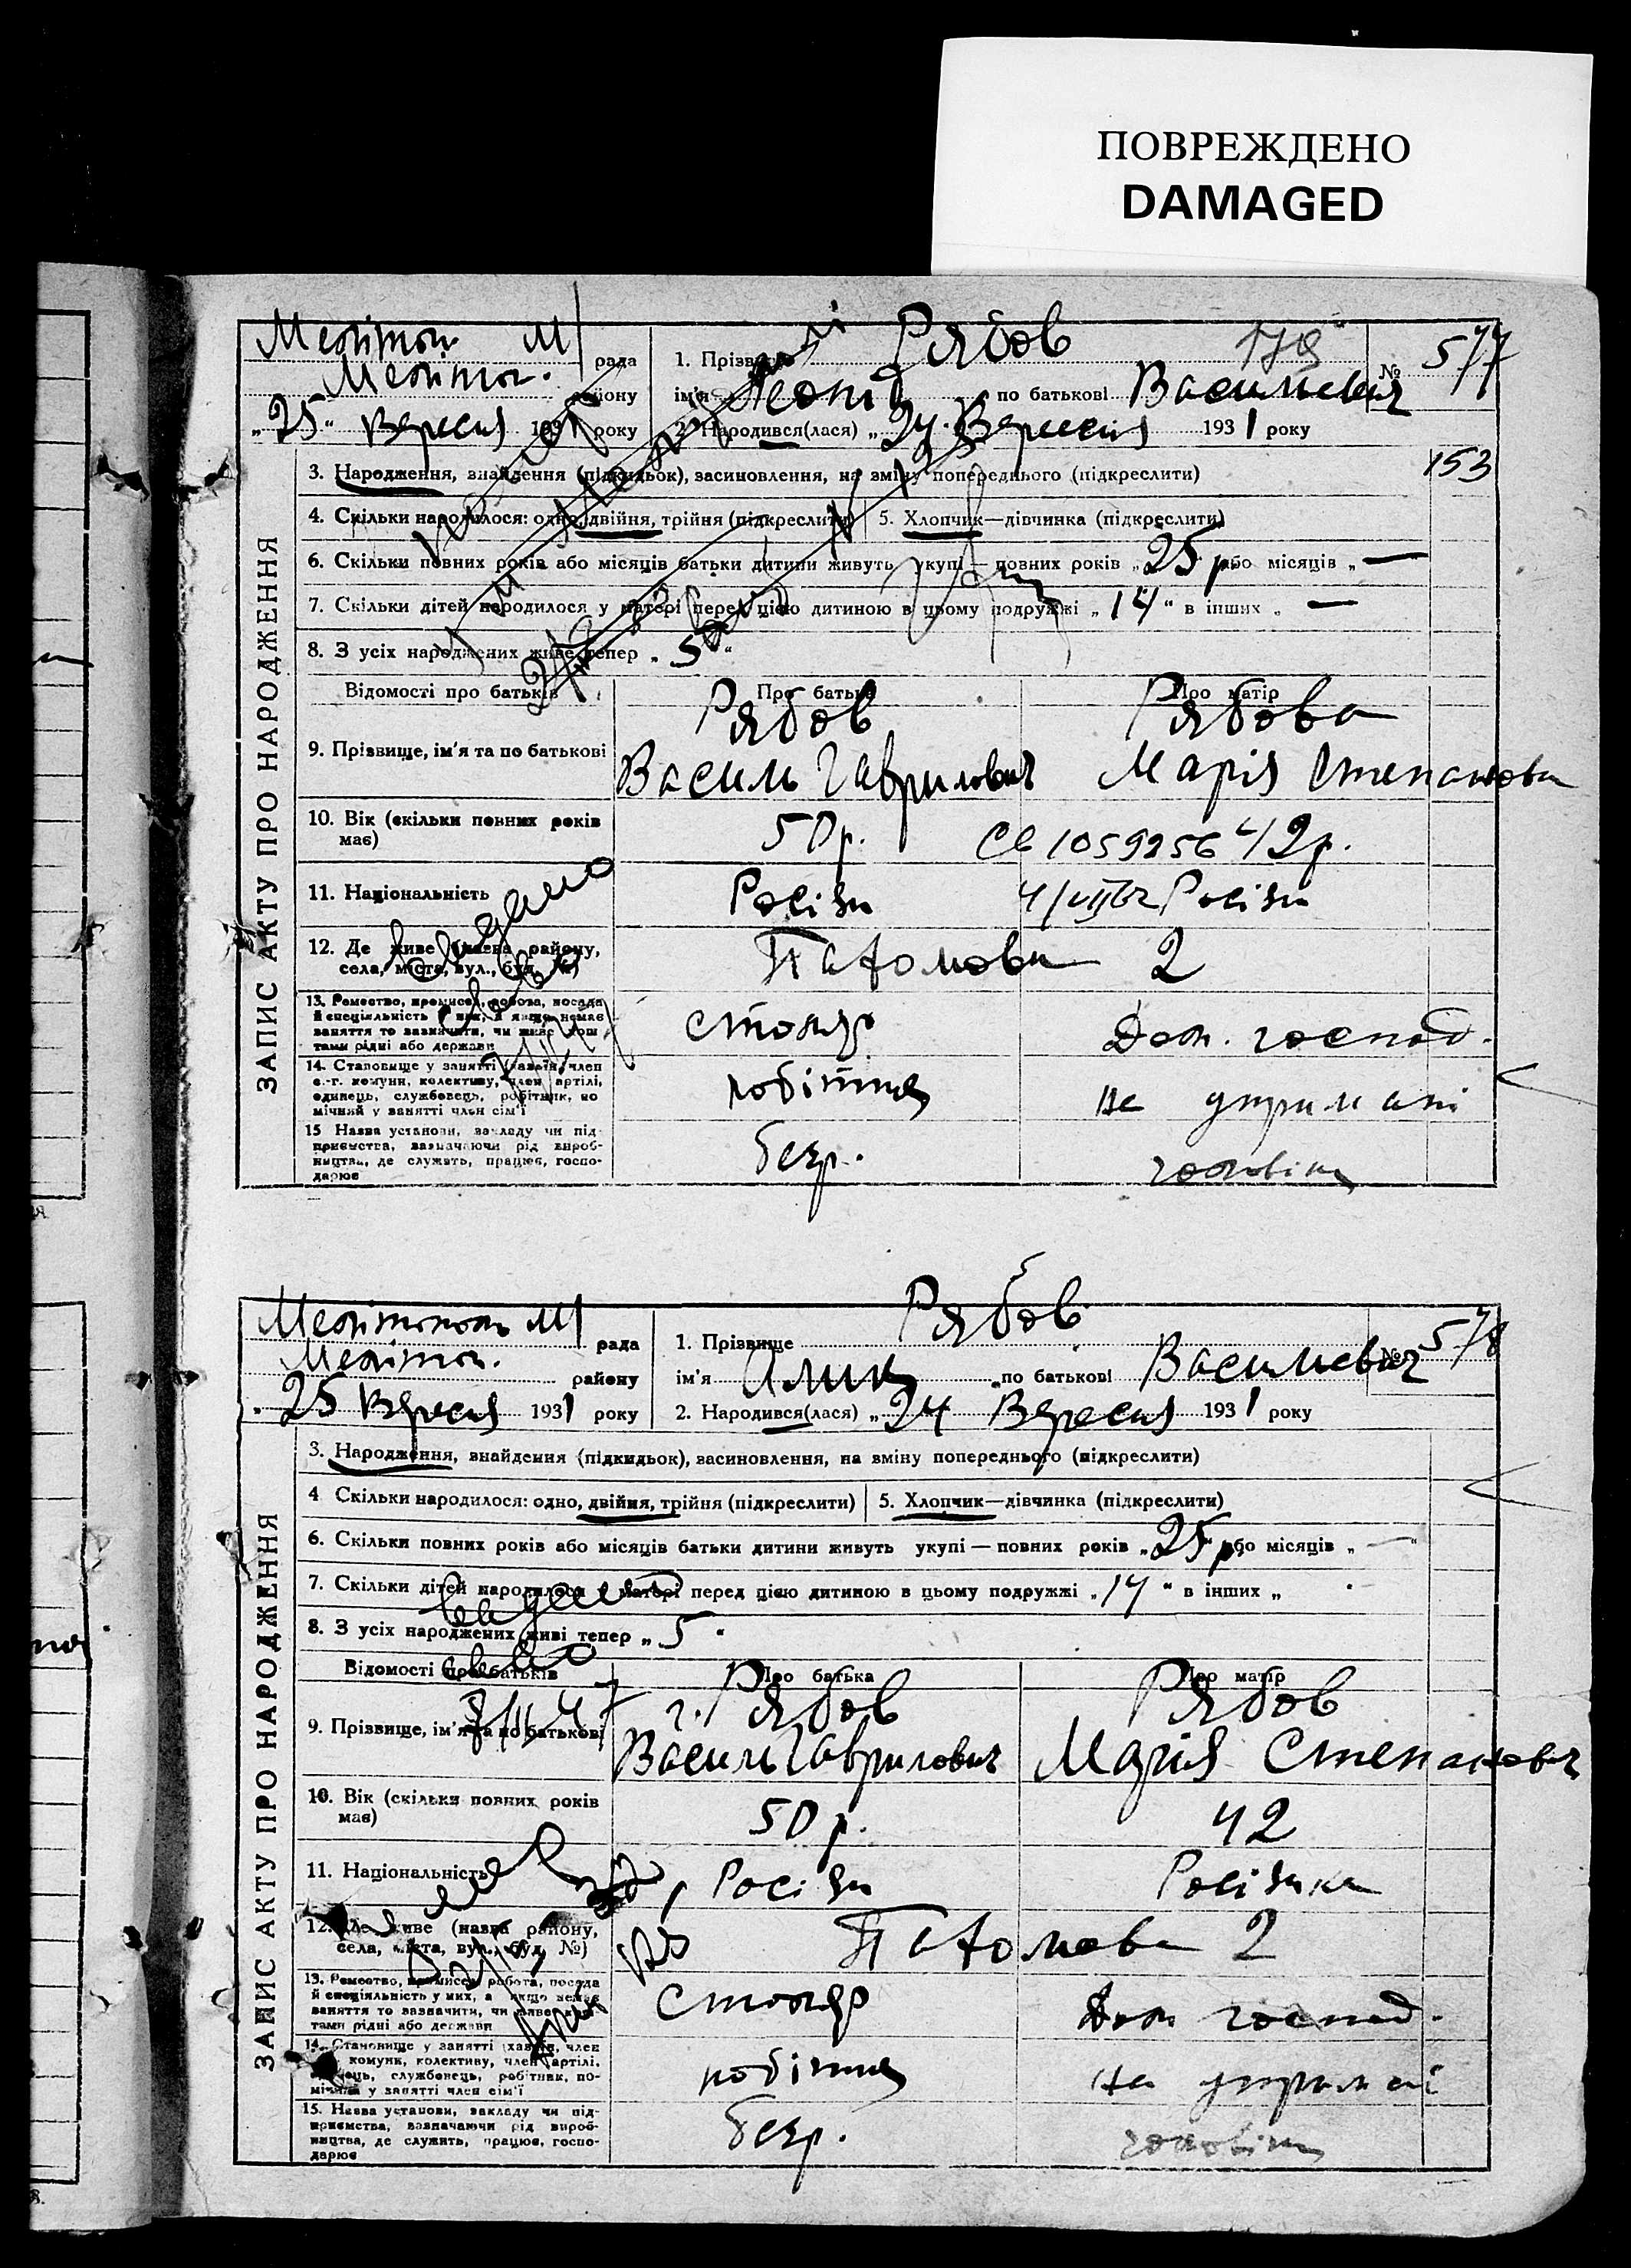 ПОВРЕЖДЕНО
DAMAGED
ЗАПИС АКТУ ПРО НАРОДЖЕННЯ
Меліτοп. М рада
Меліт. району
„25“ Вересня 1931 року
1. Прізвище Рябов
№ 577
ім'я Леонід по батькові Васильевич
2. Народився(лася) „24 Вересня 1931 року
153
3. Народження, знайдення (підкидьок), засиновлення, на зміну попереднього (підкреслити)
4. Скільки народилося: одно, двійня, трійня (підкреслити) 5. Хлопчик—дівчинка (підкреслити)
6. Скільки повних років або місяців батьки дитини живуть укупі — повних років „25 р. або місяців „—
7. Скільки дітей народилося у матері перед цією дитиною в цьому подружжі „14“ в інших „ —
8. З усіх народжених живе тепер „5“
Відомості про батьків Про батька Про матір
9. Прізвище, ім'я та по батькові
Рябов Рябова
Василь Гаврилович Марія Степановна
10. Вік (скільки повних років має) 50 р. 42 р.
Св 1059256
11. Національність Росіян Росіян
12. Де живе (назва району, села, міста, вул., буд. №) 2
13. Ремество, промисел, робота, посада й спеціяльність у них, а якщо немає заняття то зазначити, чи живе кош тами рідні або держави
столяр Дом. господ.
14. Становище у занятті (хазяїн, член с.-г. комуни, колективу, член артілі, одинець, службовець, робітник, по мічний у занятті член сім'ї
робітник на утримані
15 Назва установи, закладу чи під приємства, зазначаючи рід вироб- ництва, де служить, працює, госпо- дарює
безр. чоловіка
ЗАПИС АКТУ ПРО НАРОДЖЕННЯ
Мелітополь М рада
Меліτοп. району
„25 Вересня 1931 року
1. Прізвище Рябов
№ 578
ім'я по батькові Васильевич
2. Народився(лася) „24 Вересня 1931 року
3. Народження, знайдення (підкидьок), засиновлення, на зміну попереднього (підкреслити)
4 Скільки народилося: одно, двійня, трійня (підкреслити) 5. Хлопчик—дівчинка (підкреслити)
6. Скільки повних років або місяців батьки дитини живуть укупі — повних років „25 р. або місяців „—“
7. Скільки дітей народилося у матері перед цією дитиною в цьому подружжі „14“ в інших „
8. З усіх народжених живі тепер „5“
Відомості про батьків Про батька Про матір
9. Прізвище, ім'я та по батькові
Рябов Рябов
Василь Гаврилович Марія Степанович
10. Вік (скільки повних років має) 50 р. 42
11. Національність Росіян Росіянка
12. Де живе (назва району, села, міста, вул., буд. №) 2
13. Ремество, промисел, робота, посада й спеціяльність у них, а якщо немає заняття то зазначити, чи живе кош тами рідні або держави
столяр Дом господ.
14. Становище у занятті (хазяїн, член комуни, колективу, член артілі, одинець, службовець, робітник, по- мічний у занятті член сім'ї
робітник на утримані
15. Назва установи, закладу чи під- приємства, зазначаючи рід вироб- ництва, де служить, працює, госпо- дарює
безр. чоловіка